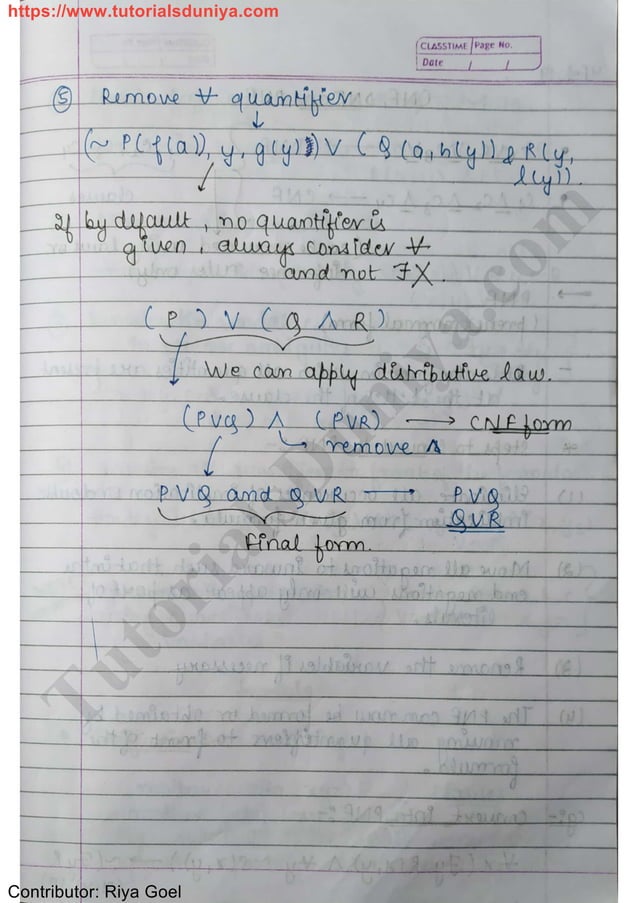 https://www.tutorialsduniya.com
CLASSTIME Page No.
Date / /
⑤ Remove ∀ quantifier
↓
(~ P(f(a)), y, g(y)) V ( Q (a, h(y)) & R(y,
l(y)).
If by default, no quantifier is
given, always consider ∀
and not ∃X.
( P ) V ( Q Λ R )
We can apply distributive law.
(PVQ) Λ (PVR) → CNF form
remove Λ
PVQ and QVR → PVQ
QVR
Final form.
TutorialsDuniya.com
Contributor: Riya Goel